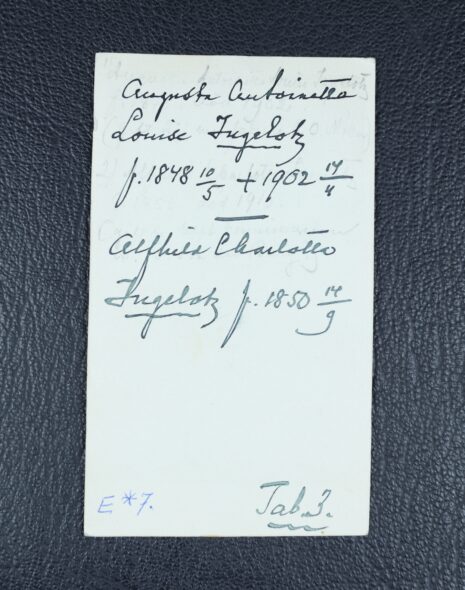 Augusta Antoinetta
Louise Ingelotz
f. 1848 10/5 + 1902 14/4
Alfhild Charlotta
Ingelotz f. 1850 14/9
E*7. Tab. 3.